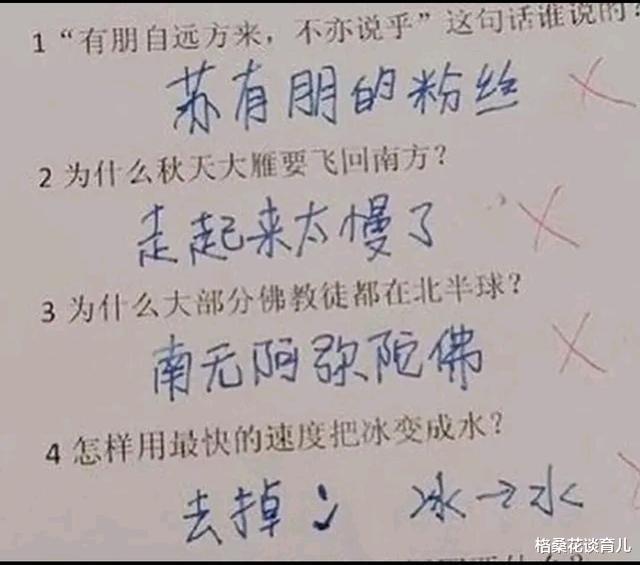 1 “有朋自远方来，不亦说乎”这句话谁说的?
苏有朋的粉丝
2 为什么秋天大雁要飞回南方？
走起来太慢了
3 为什么大部分佛教徒都在北半球？
南无阿弥陀佛
4 怎样用最快的速度把冰变成水？
去掉冫 冰→水
格桑花谈育儿